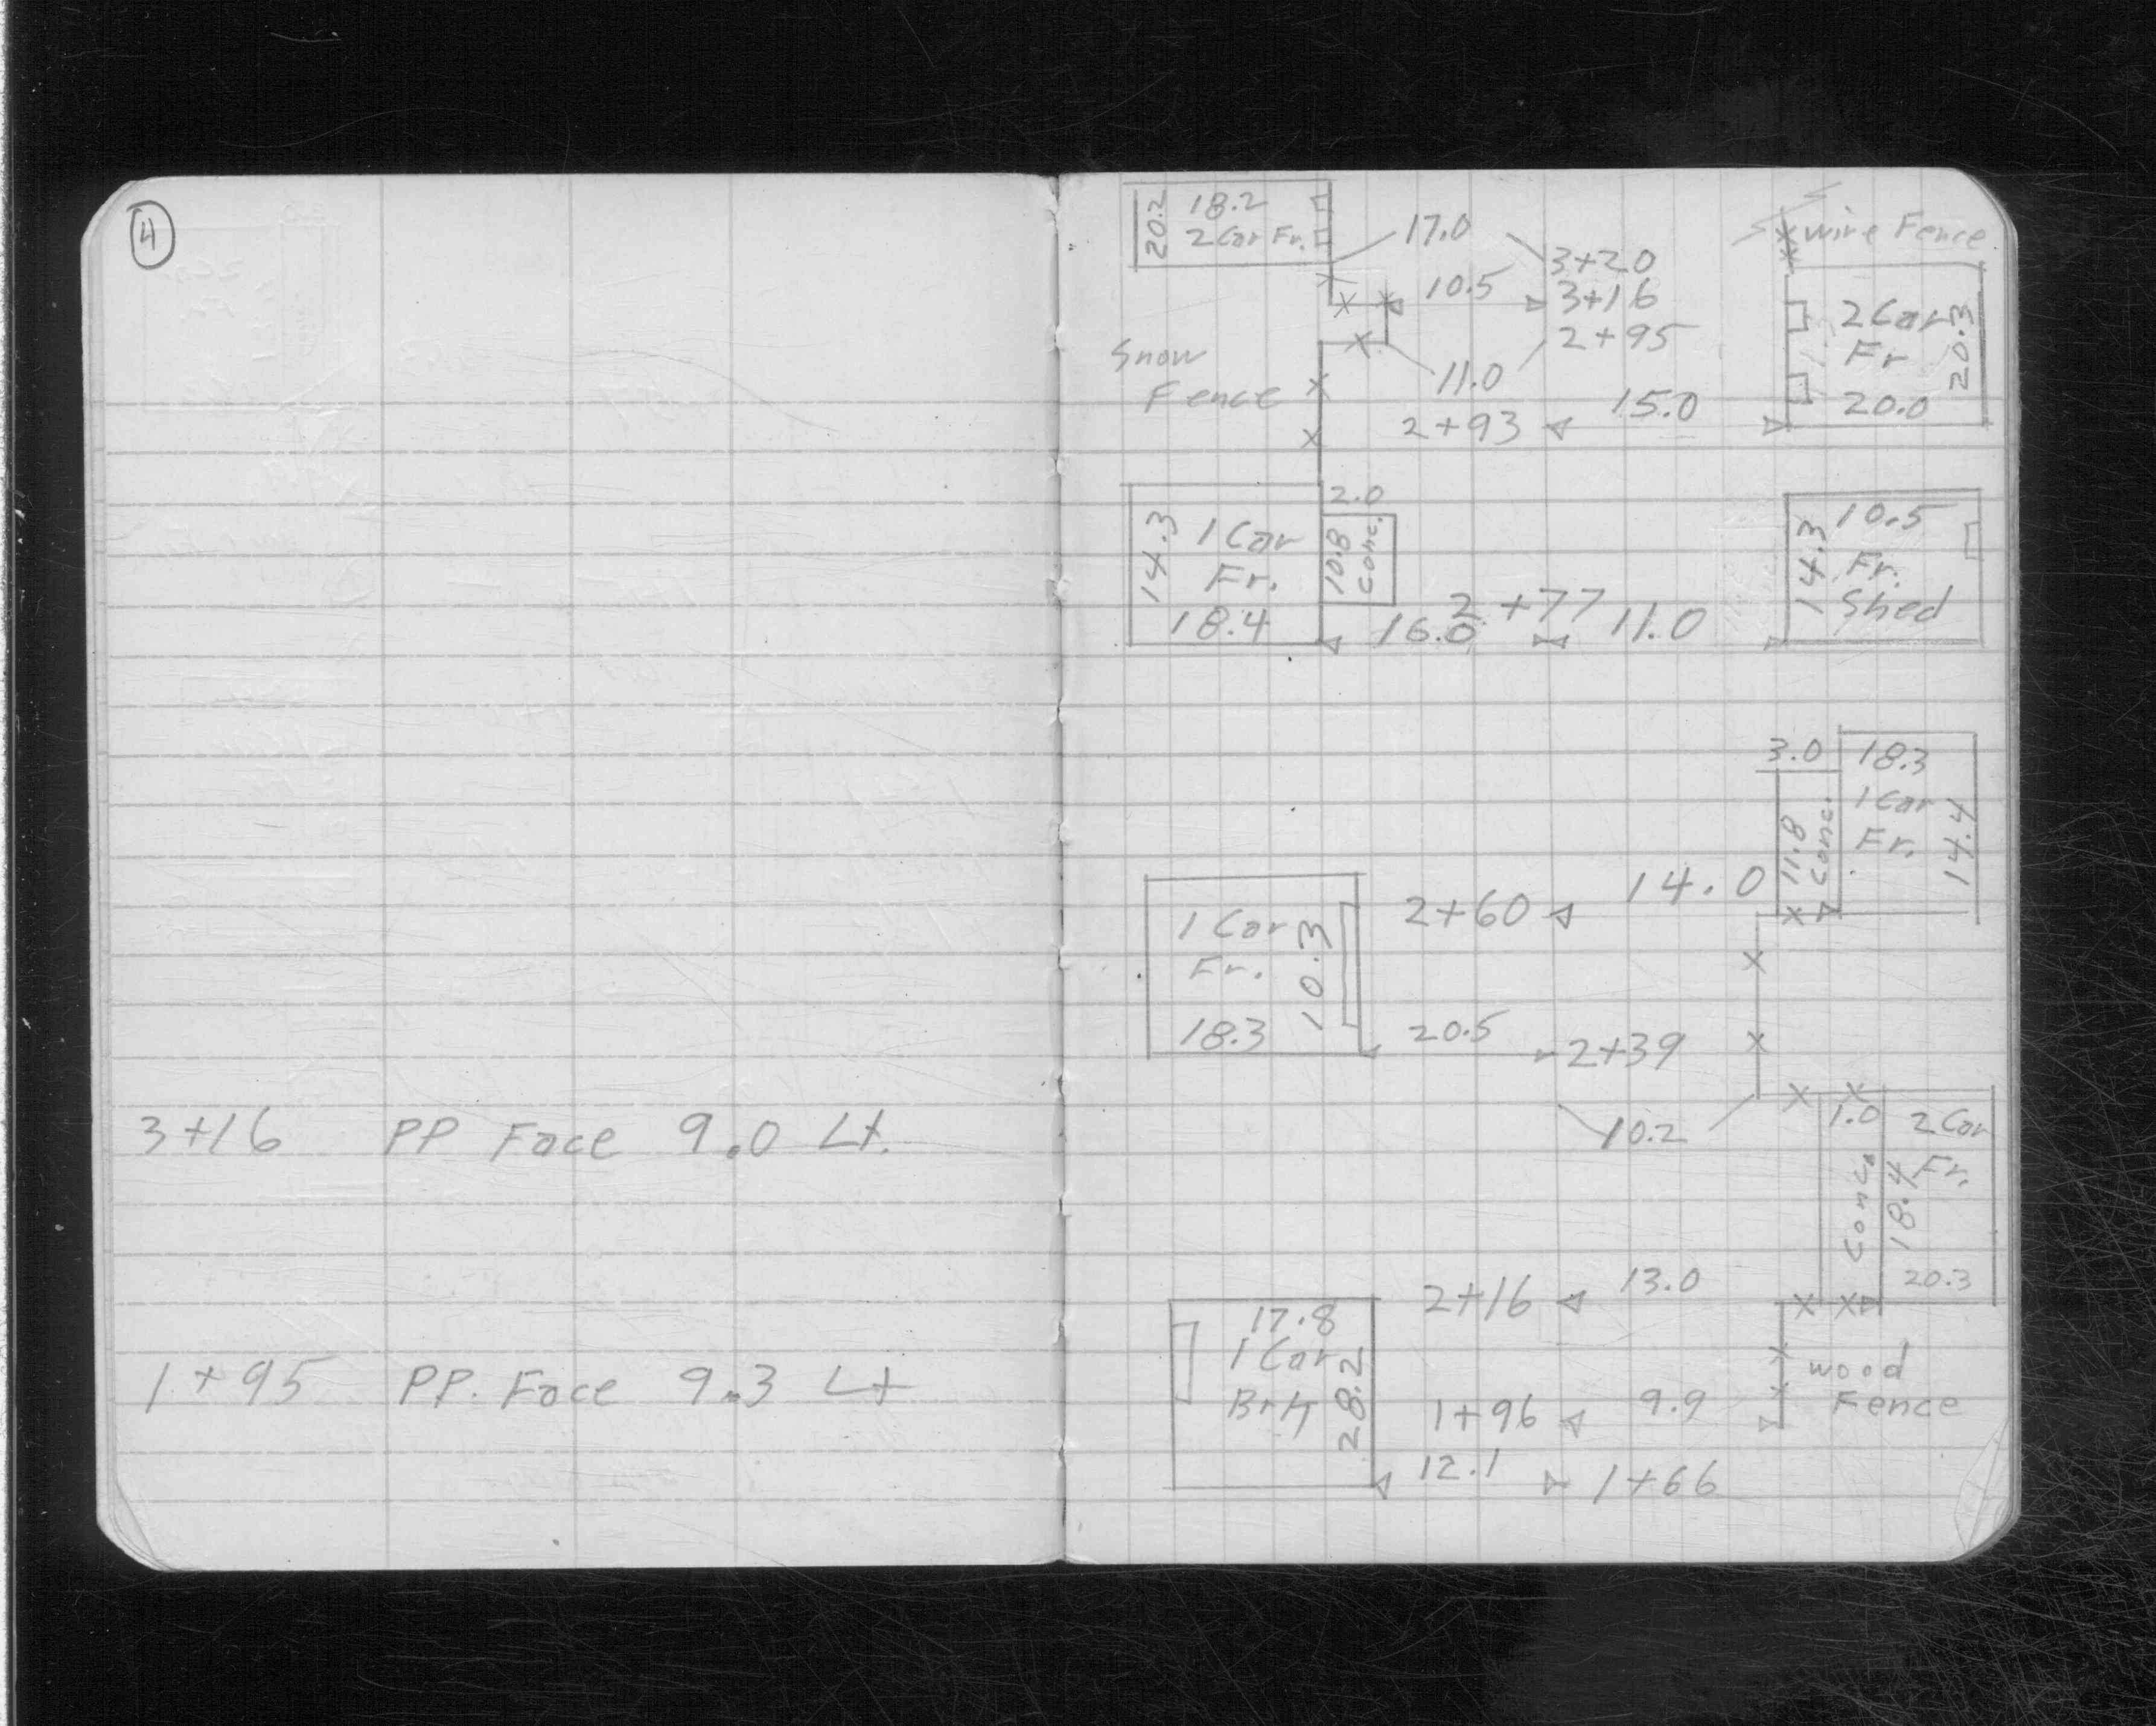 4
3+16 PP Face 9.0 Lt.
1+95 PP. Face 9.3 Lt
20.2 18.2
2 Car Fr.
17.0
wire Fence
3+20
10.5 3+16
2+95
Snow
Fence
11.0
2+93 15.0
2 Car
Fr
20.0
20.3
2.0
14.3 1 Car
Fr.
18.4
10.8
Conc.
2+77
16.0 11.0
10.5
14.3 Fr.
Shed
3.0 18.3
1 Car
Fr.
14.4
11.8
Conc.
2+60 14.0
1 Car
Fr.
18.3
10.3
20.5 2+39
10.2
1.0 2 Car
Fr.
Conc.
18.4
20.3
2+16 13.0
17.8
1 Car
Brk
28.2
1+96 9.9
wood
Fence
12.1 1+66